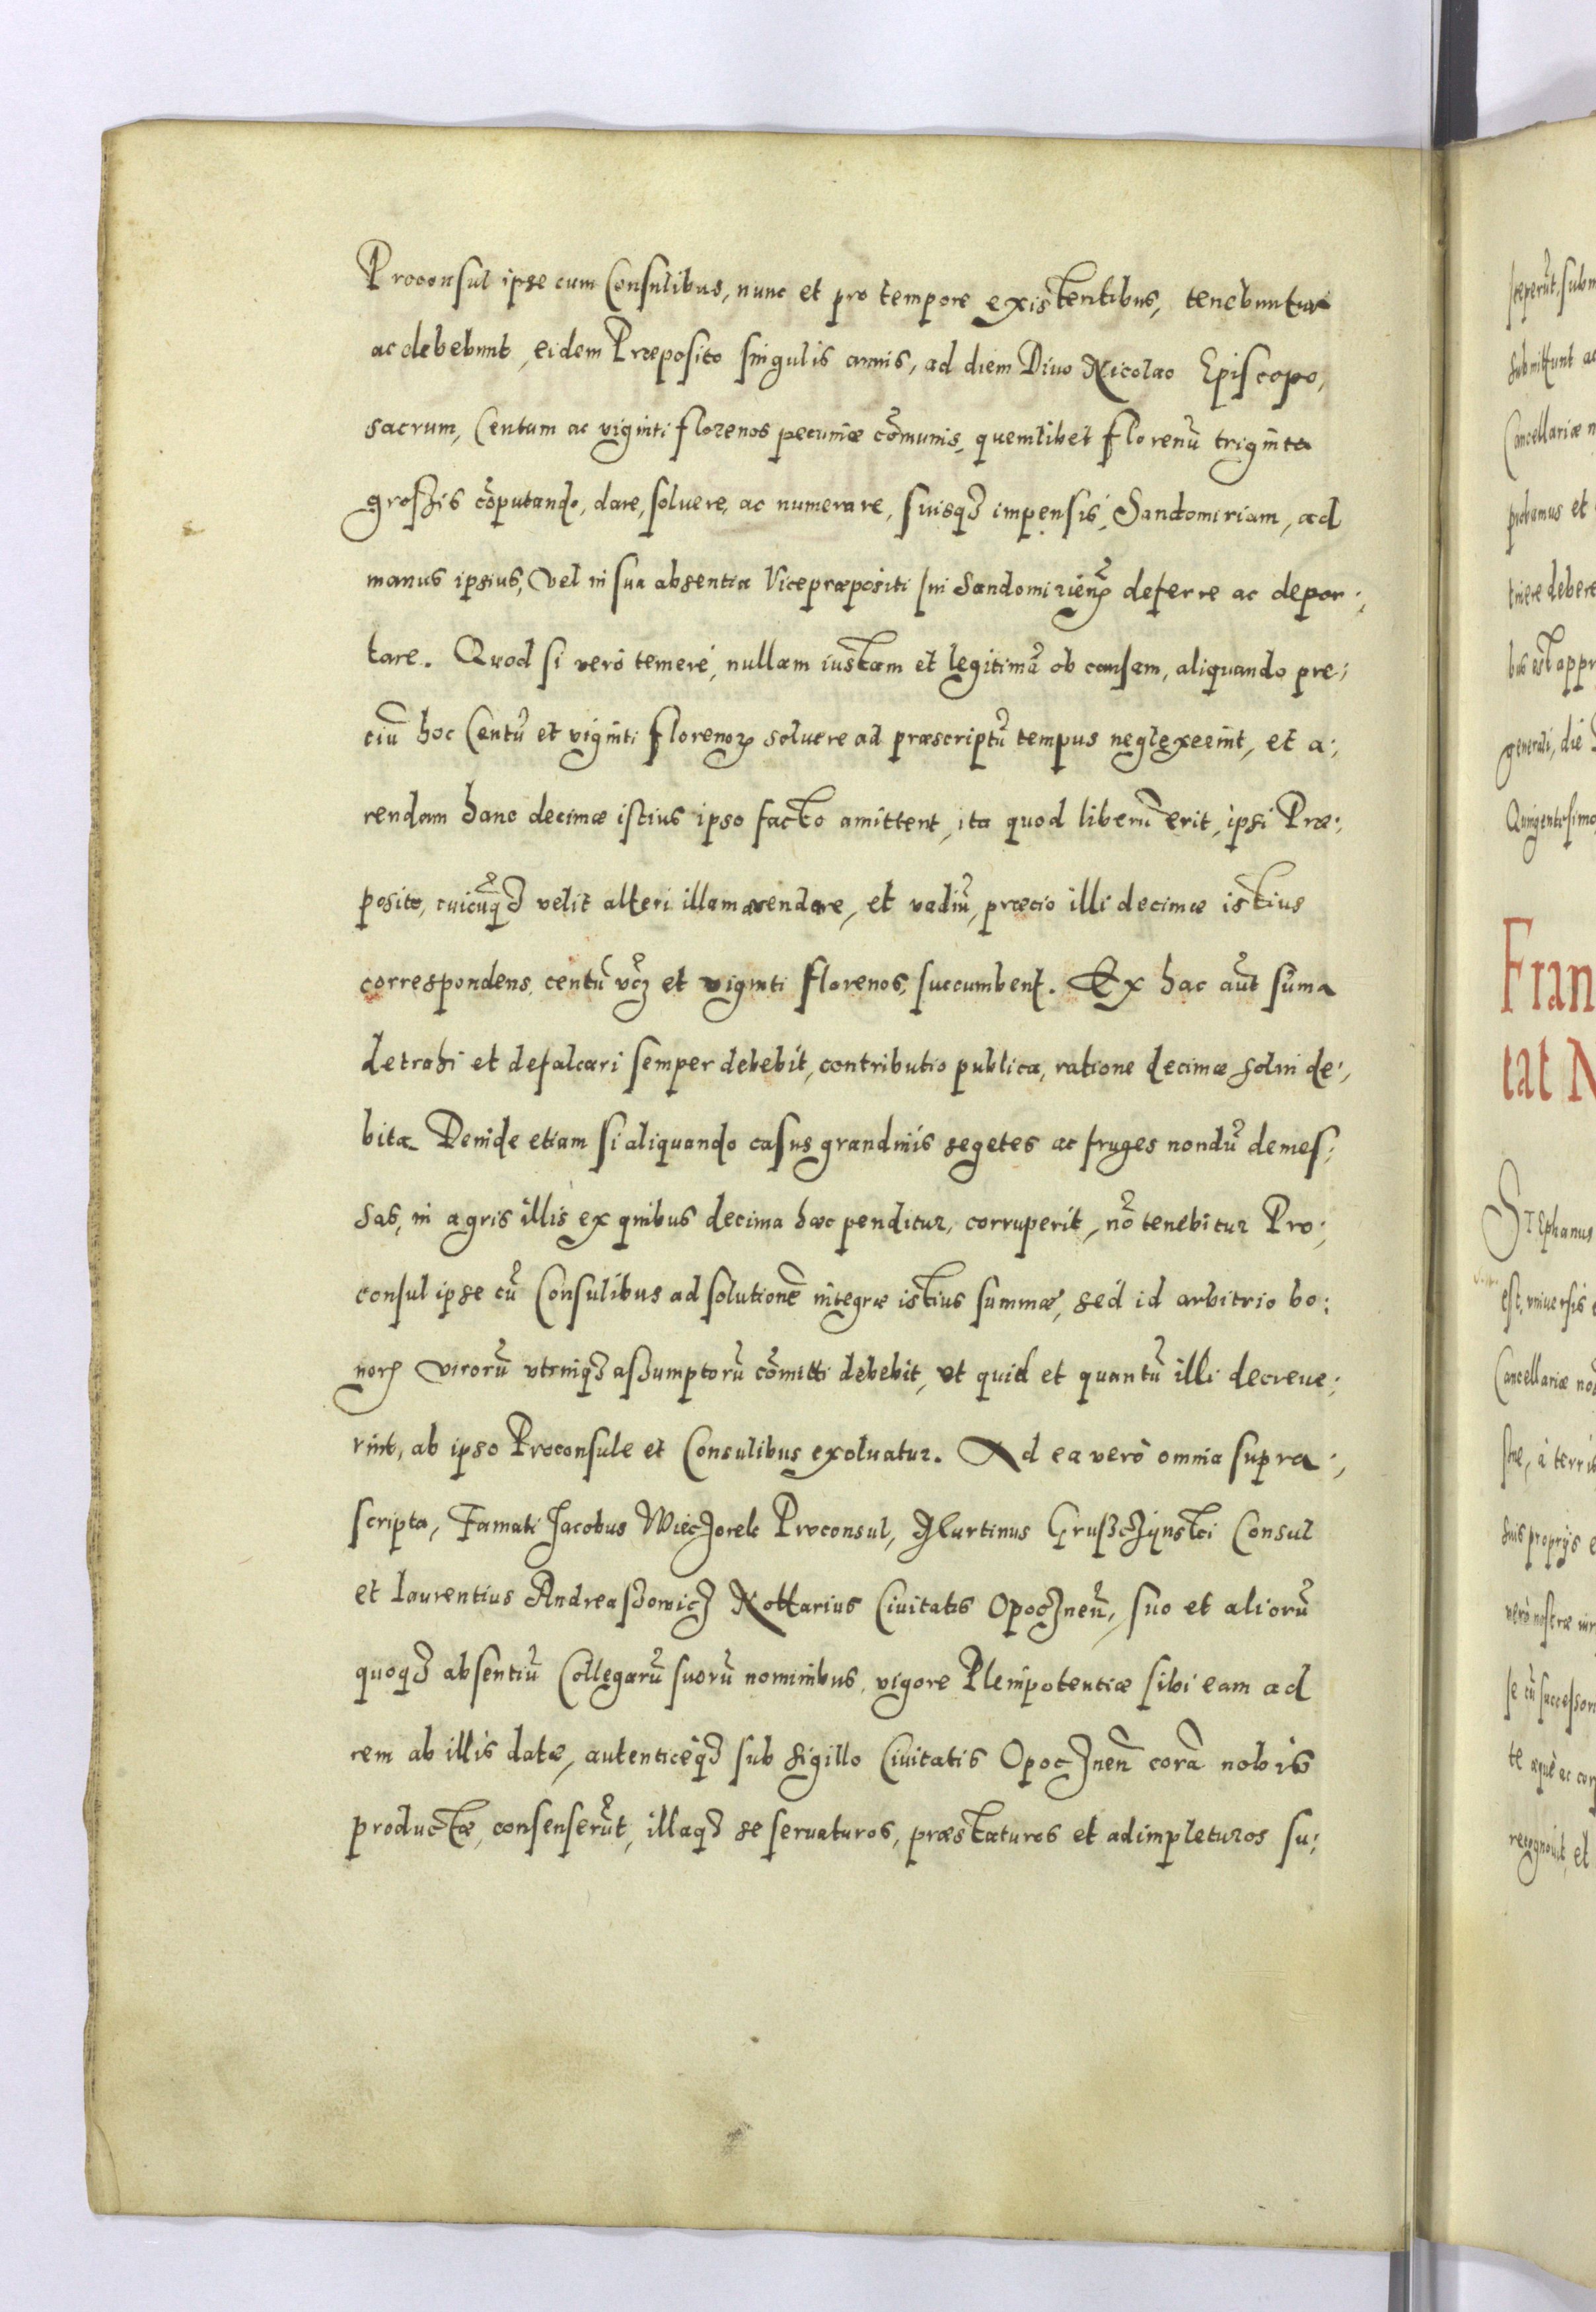 Proconsul ipse cum Consulibus, nunc et pro tempore existentibus, tenebuntur
ac debebunt, eidem Præposito singulis annis, ad diem Diuo Nicolao Episcopo,
sacrum, Centum ac viginti florenos pecuniæ cōmunis, quemlibet florenū triginta
groszis cōputando, dare, soluere, ac numerare, suisqȝ impensis, Sandomiriam, ad
manus ipsius, vel in sua absentia Vicepræpositi sui Sandomirieñ deferre ac depor:,
tare. Quod si verò temerè, nullam iustam et legitimā ob causam, aliquando pre:,
ciū hoc Centū et viginti florenoꝝ soluere ad præscriptū tempus neglexerint, et a:,
rendam hanc decimæ istius ipso facto amittent, ita quod liberū erit, ipsi Præ:,
posito, cuicūqȝ velit alteri illam arendare, et vadiū, præcio illi decimæ istius
correspondens, centū vcȝ et viginti florenos, succumbent. Ex hac aūt sūma
detrahi et defalcari semper debebit, contributio publica, ratione decimæ solui de:,
bita. Deinde etiam si aliquando casus grandinis segetes ac fruges nondū demes:,
sas, in agris illis ex quibus decima hæc penditur, corruperit, nō tenebitur Pro:,
consul ipse cū Consulibus ad solutionē integræ istius summæ, sed id arbitrio bo:
noꝝ virorū vtrinqȝ assumptorū cōmitti debebit, vt quid et quantū illi decreue:,
rint, ab ipso Proconsule et Consulibus exoluatur. Ad ea verò omnia supra:,
scripta, Famati Jacobus Wieczorek Proconsul, Martinus Gruszczynski Consul
et Laurentius Andreaszowicz Nottarius Ciuitatis Opoczneñ, suo et aliorū
quoqȝ absentiū Collegarū suorū nominibus, vigore Plenipotentiæ sibi eam ad
rem ab illis datæ, autenticèqȝ sub sigillo Ciuitatis Opoczneñ corā nobis
productæ, consenserūt, illaqȝ se seruaturos, præstaturos et adimpleturos su:,
Fran
tat N
Stephanus
est, vniuersis
Cancellariæ
suis proprijs
te æquè ac